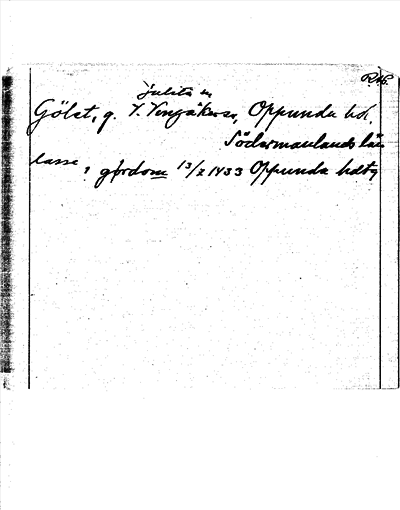 R.16.
Julita sn
Gölet, g. V. Vingåkers, Oppunda hd.
Södermanlands län
lasse, i gørdom 13/2 1433 Oppunda hdtg